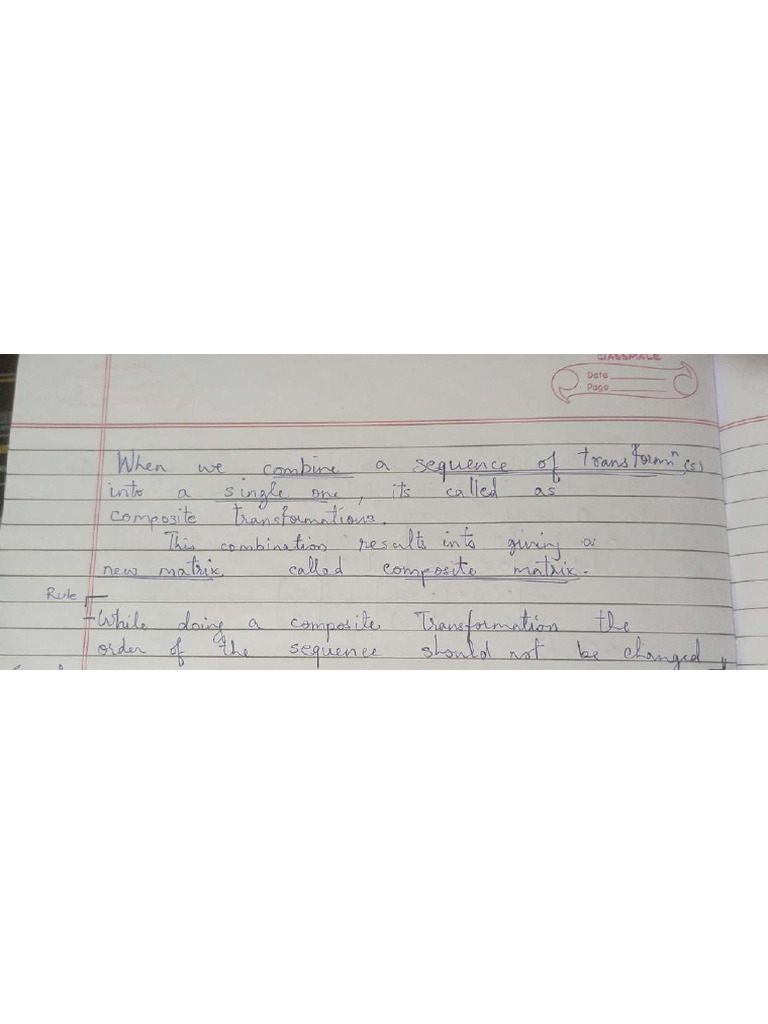 CLASSMATE
Date
Page
When we combine a sequence of transformⁿ(s)
into a single one, its called as
composite transformations.
This combination results into giving a
new matrix, called composite matrix.
Rule
While doing a composite Transformation the
order of the sequence should not be changed